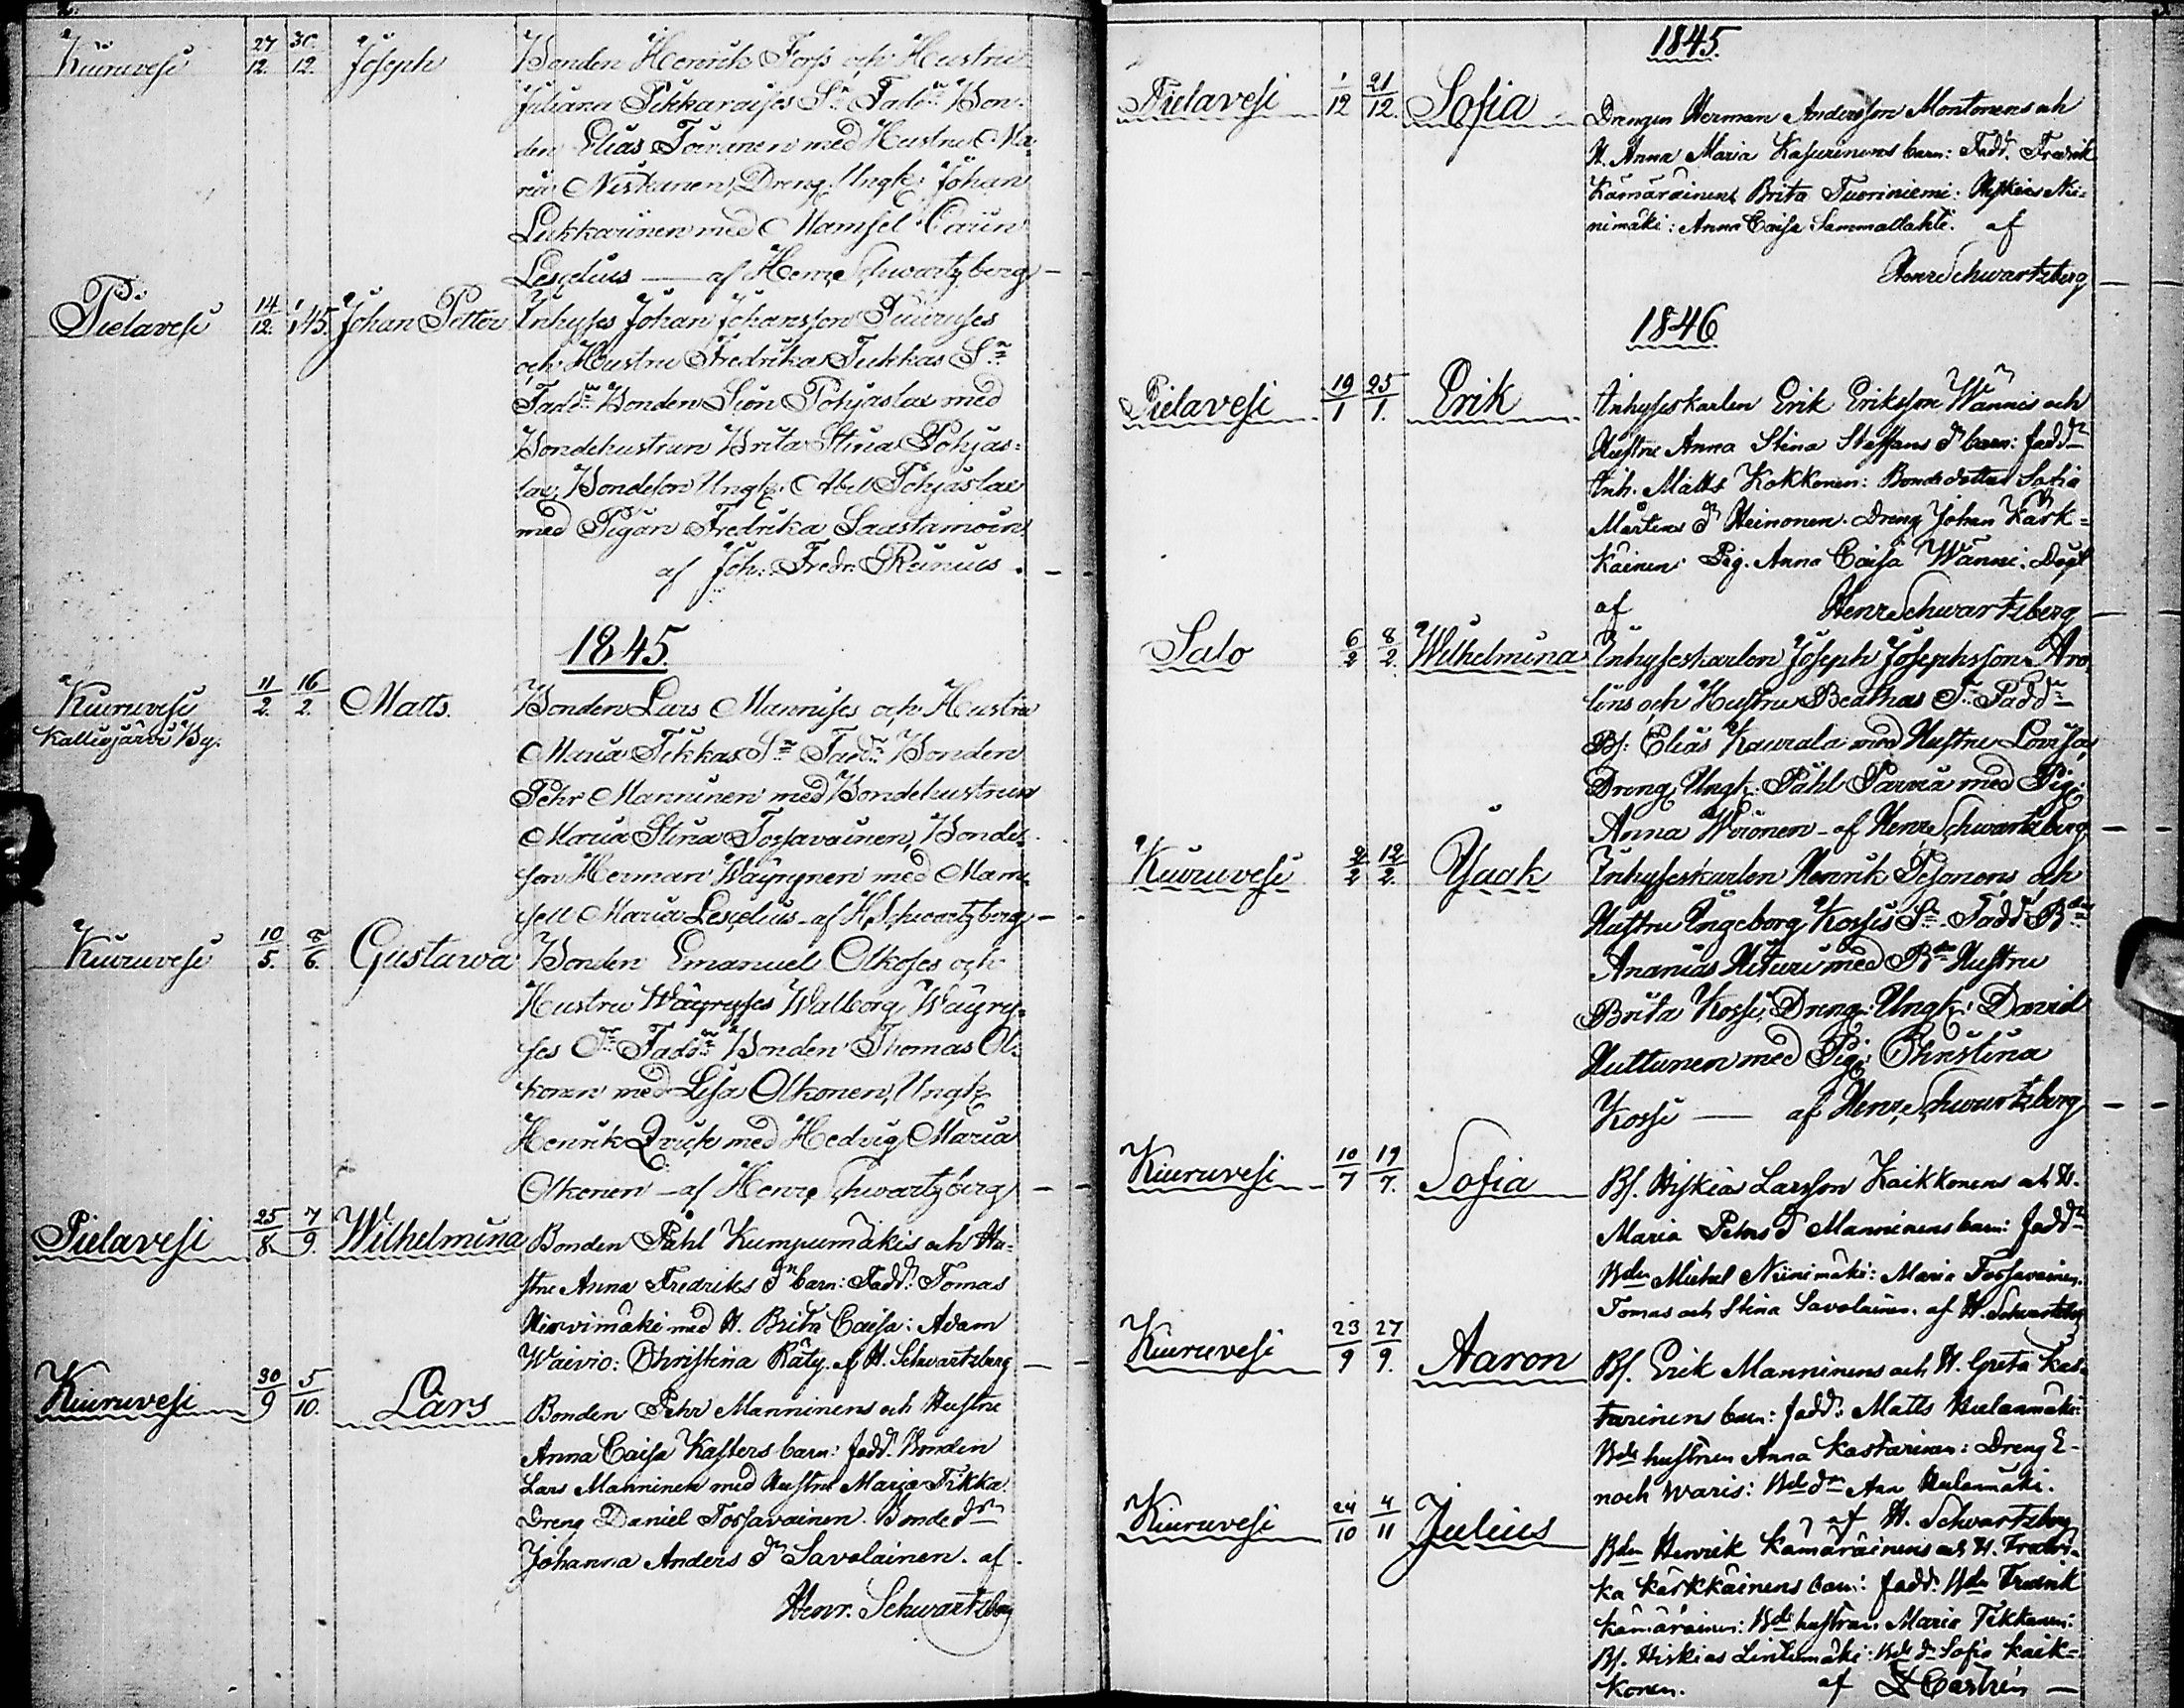 Kiuruvesi 27/12. 30/12. Joseph Bonden Henrik Forss och Hustru
Juliana Tikkaraises Sn Fadd: Bon-
den Elias Toivanen med Hustru Ma-
ria Niskanen, Dreng. Ungk. Johan
Lukkarinen med Mamsel Carin
Lescelius — af Henr. Schwartzberg —
Pielavesi 14/12. 1/1 45. Johan Petter Inhyses Johan Johansson
och Hustru Fredrika Tukkas Sn
Fadd: Bonden Sion Pohjaslax med
Bondehustrun Brita Stina Pohjas-
lax, Bondeson Ungk. Abel Pohjaslax
med Pigan Fredrika Saastamoin
af Joh. Fredr. —
1845.
Kiuruvesi 11/2. 16/2. Matts. Bonden Lars Mannises och Hustru
Kalliojärvi By. Maria Tikkas Sn Fadd: Bonden
Pehr Manninen med Bondehustrun
Maria Stina Tossavainen, Bonde-
son Herman Wäyrynen med Mam-
sell Maria Lescelius - af H. Schwartzberg —
Kiuruvesi 10/5. 8/6. Gustawa Bonden Emanuel Olkoses och
Hustru Wäyryses Walborg Wäyry-
ses Dr Fadd: Bonden Thomas Ol-
konen med Lisa Olkonen, Ungk.
Henrik med Hedvig Maria
Olkonen — af Henr. Schwartzberg —
Pielavesi 25/8. 7/9. Wilhelmina Bonden Påhl Kumpumäkis och Hu-
stru Anna Fredriks Dr barn: Fadd: Tomas
Hirvimäki med H. Brita Caisa: Adam
Waivio: Christina Räty. af H. Schwartzberg —
Kiuruvesi 30/9 5/10. Lars Bonden Pehr Manninens och Hustru
Anna Caisa Kasters barn: fadd: Bonden
Lars Manninen med Hustru Maria Tikka.
Dreng Daniel Tossavainen. Bonde dr
Johanna Anders dr Savolainen. af
Henr. Schwartzberg
1845.
Pielavesi 1/12 21/12. Sofia Drengen Herman Andersson Montonens och
H. Anna Maria Kasurinens barn: Fadd: Fredrik
Kämäräinen Brita Tuoriniemi: Hiskias Nii-
nimäki: Anna Caisa Sammallahti. af
Henr Schwartzberg —
1846
Pielavesi 19/1 25/1. Erik Inhyseskarlen Erik Eriksson Wännis och
Hustru Anna Stina Staffans dr barn: fadd:
Inh. Matts Kokkonen: Bondedottren Sofia
Mårtens dr Heinonen. Dreng Johan Kärk-
käinen: Pig. Anna Caisa Wänni: Döpt
af Henr Schwartzberg —
Salo 6/2 8/2. Wilhelmina Inhyseskarlen Joseph Josephsson Aro-
lins och Hustru Beathas Dr Fadd:
Bf: Elias Kaurala med Hustru Lovisa,
Dreng Ungk. Påhl Parvia med Pig:
Anna Woronen - af Henr Schwartzberg —
Kiuruvesi 2/2 12/2. Isaak Inhyseskarlen Henrik Pesonens och
Hustru Ingeborg Kosses Sn Fadd: Bn
Ananias Hituri med Bde Hustru
Brita Kosse, Dreng. Ungk: David
Huttunen med Pig: Christina
Kosse — af Henr Schwartzberg —
Kiuruvesi 10/7 19/7. Sofia Bf. Hiskias Larsson Kaikkonens och H.
Maria Pehrs Dr Manninens barn: fadd:
Bden Michel Niinimäki: Maria Tossavainen.
Tomas och Stina Savolainen. af H. Schwartzberg
Kiuruvesi 23/9 27/9. Aaron Bf. Erik Manninens och H. Greta Kas-
tarinens barn: fadd: Matts Hulanmäki:
Bde hustrun Anna Kastarinen: Dreng E-
noch Waris: Bde dr Ana Hulanmäki.
af H. Schwartzberg
Kiuruvesi 24/10 4/11 Julius Bden Henrik Kämäräinens och H. Fredri-
ka Kärkkäinens barn: fadd: Bden Fredrik
Kämäräinen: Bde hustrun Maria Tikkanen:
Bf. Hiskias Lintumäki: Bde dr Sofia Kaik-
konen. af Castrén —